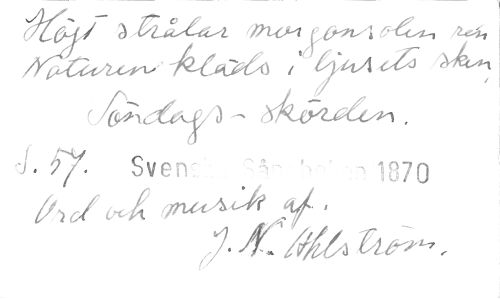 Högt strålar morgonsolen ren
Naturen kläds i ljusets sken,
Söndags-skörden.
S. 57. Svenska Sångboken 1870
Ord och musik af.
J. N. Ahlström.